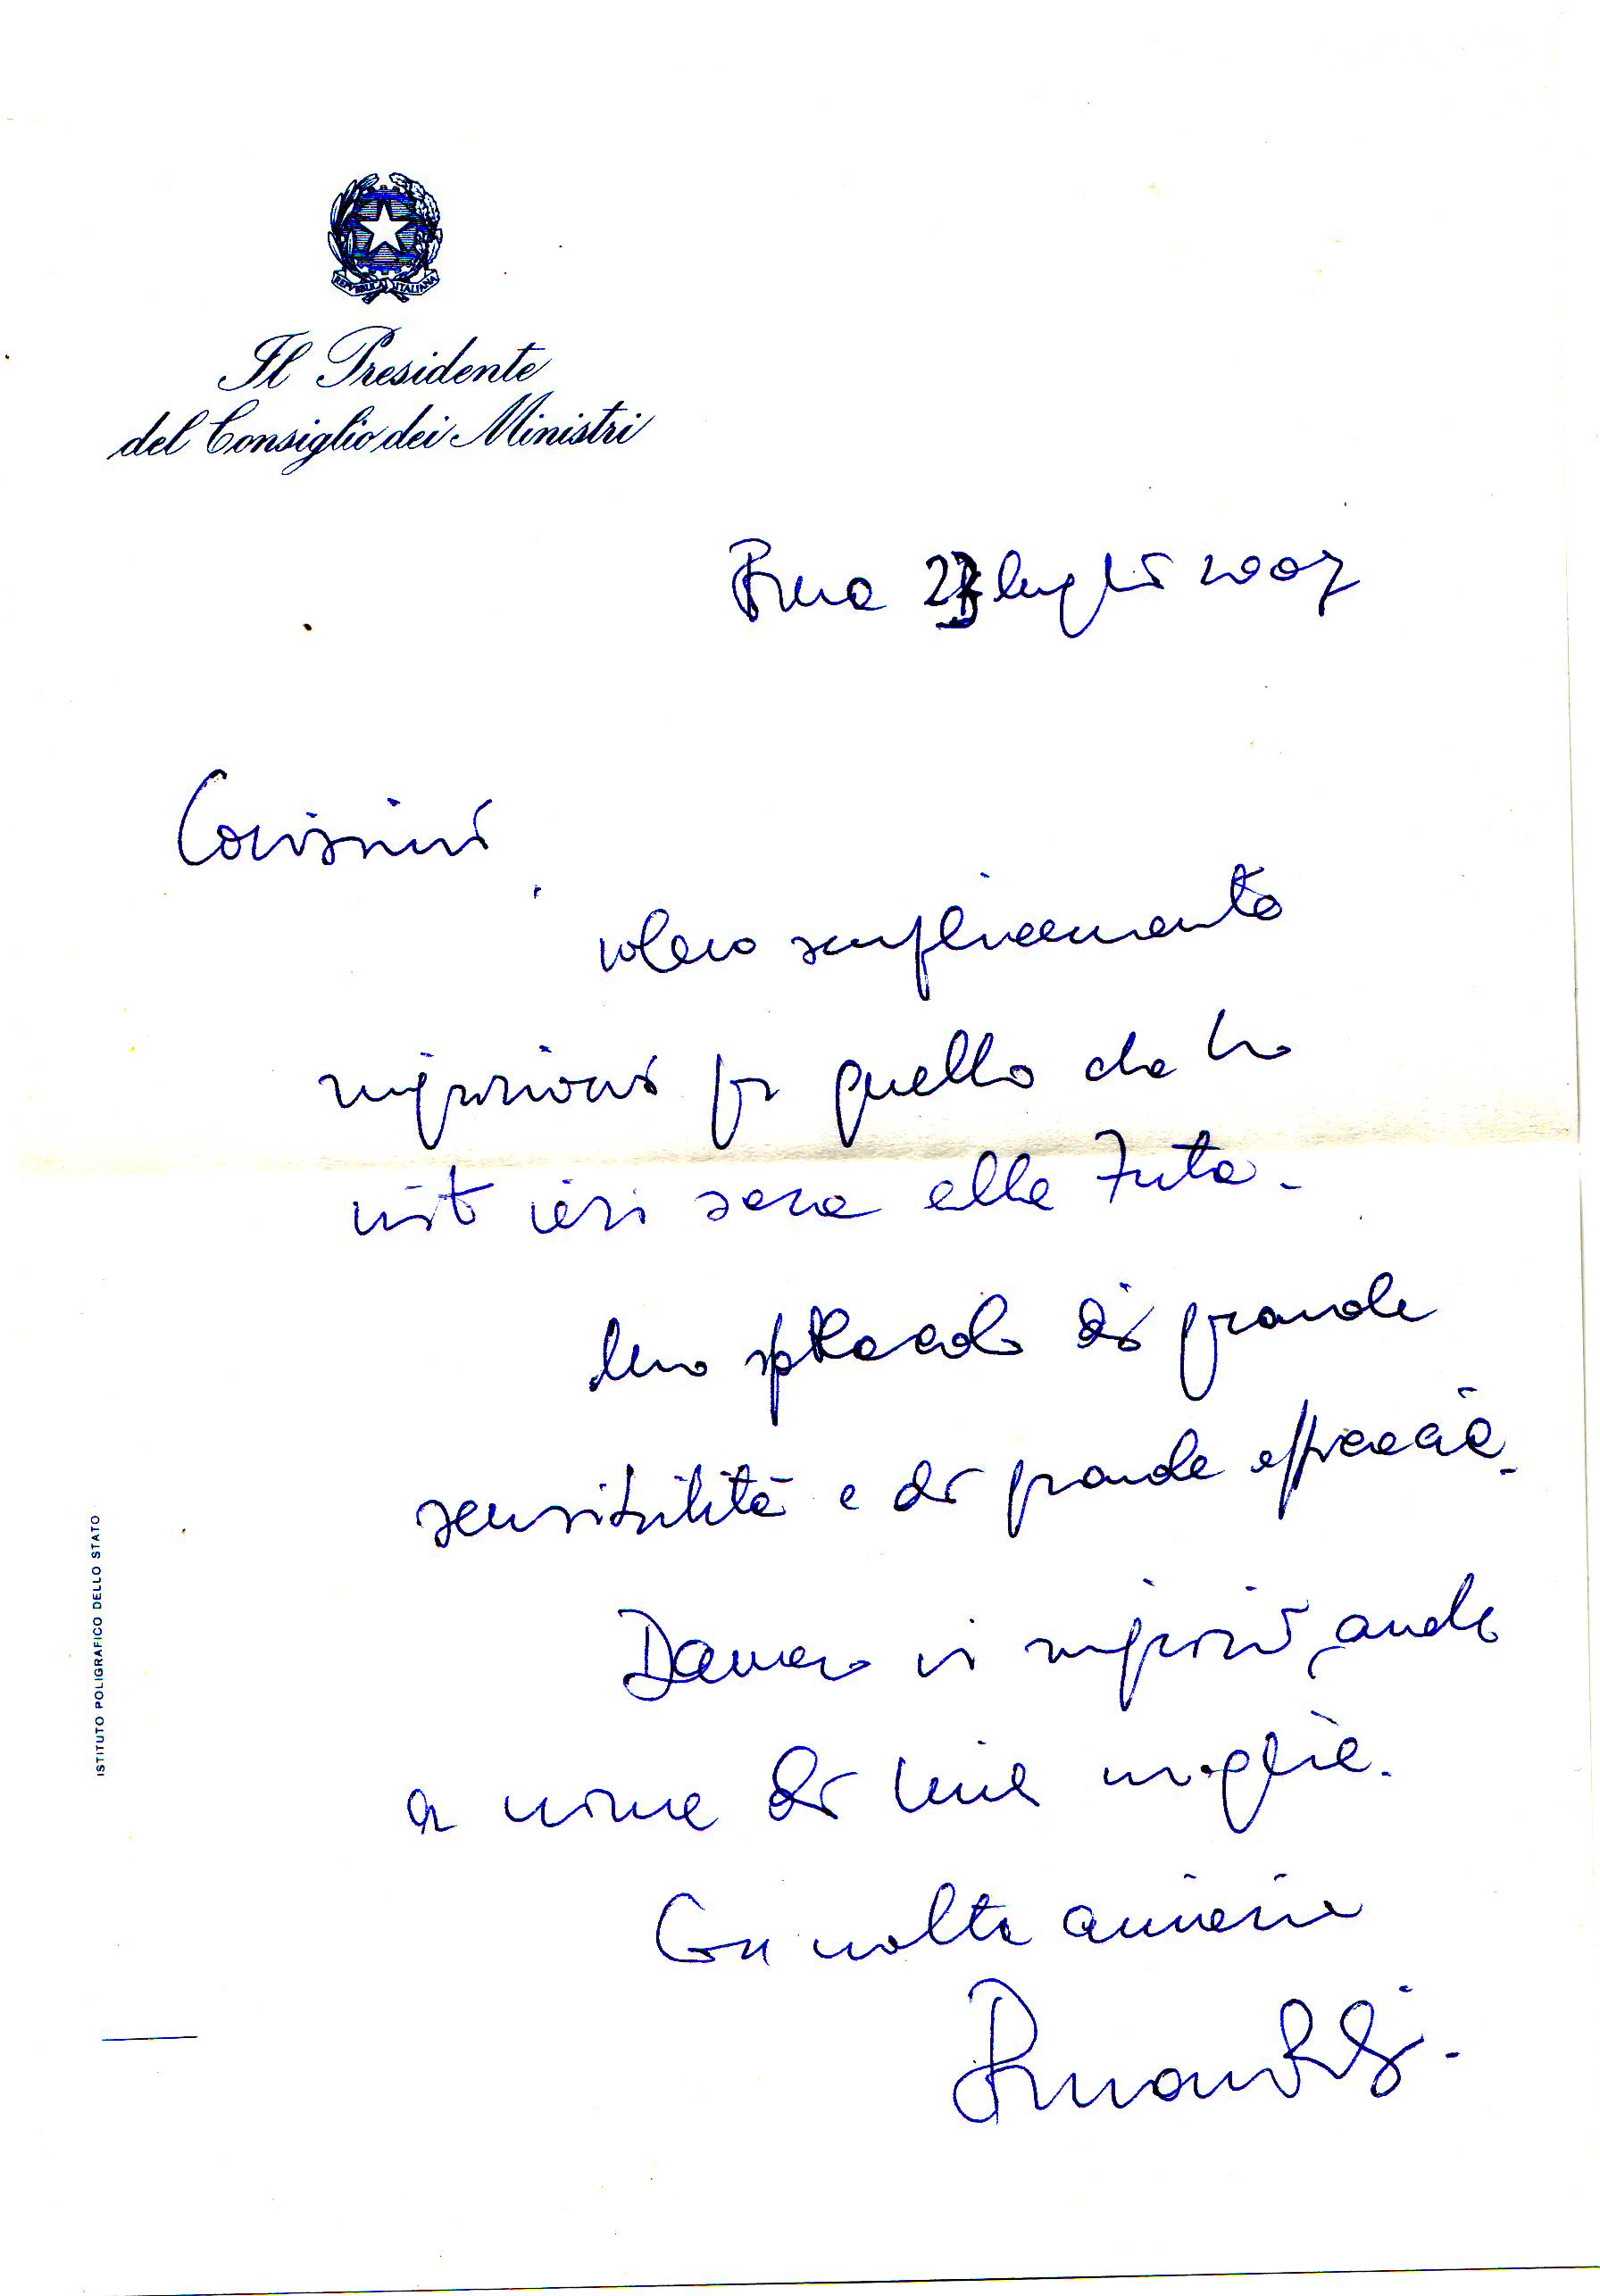 REPVBBLICA ITALIANA
Il Presidente
del Consiglio dei Ministri
Roma 23 luglio 2007
Carissimi,
volevo semplicemente
ringraziarvi per quello che ho
visto ieri sera alla Futa.
Uno spettacolo di grande
sensibilità e di grande efficacia.
Davvero vi ringrazio, anche
a nome di mia moglie.
Con molta amicizia
Romano Prodi.
ISTITUTO POLIGRAFICO DELLO STATO